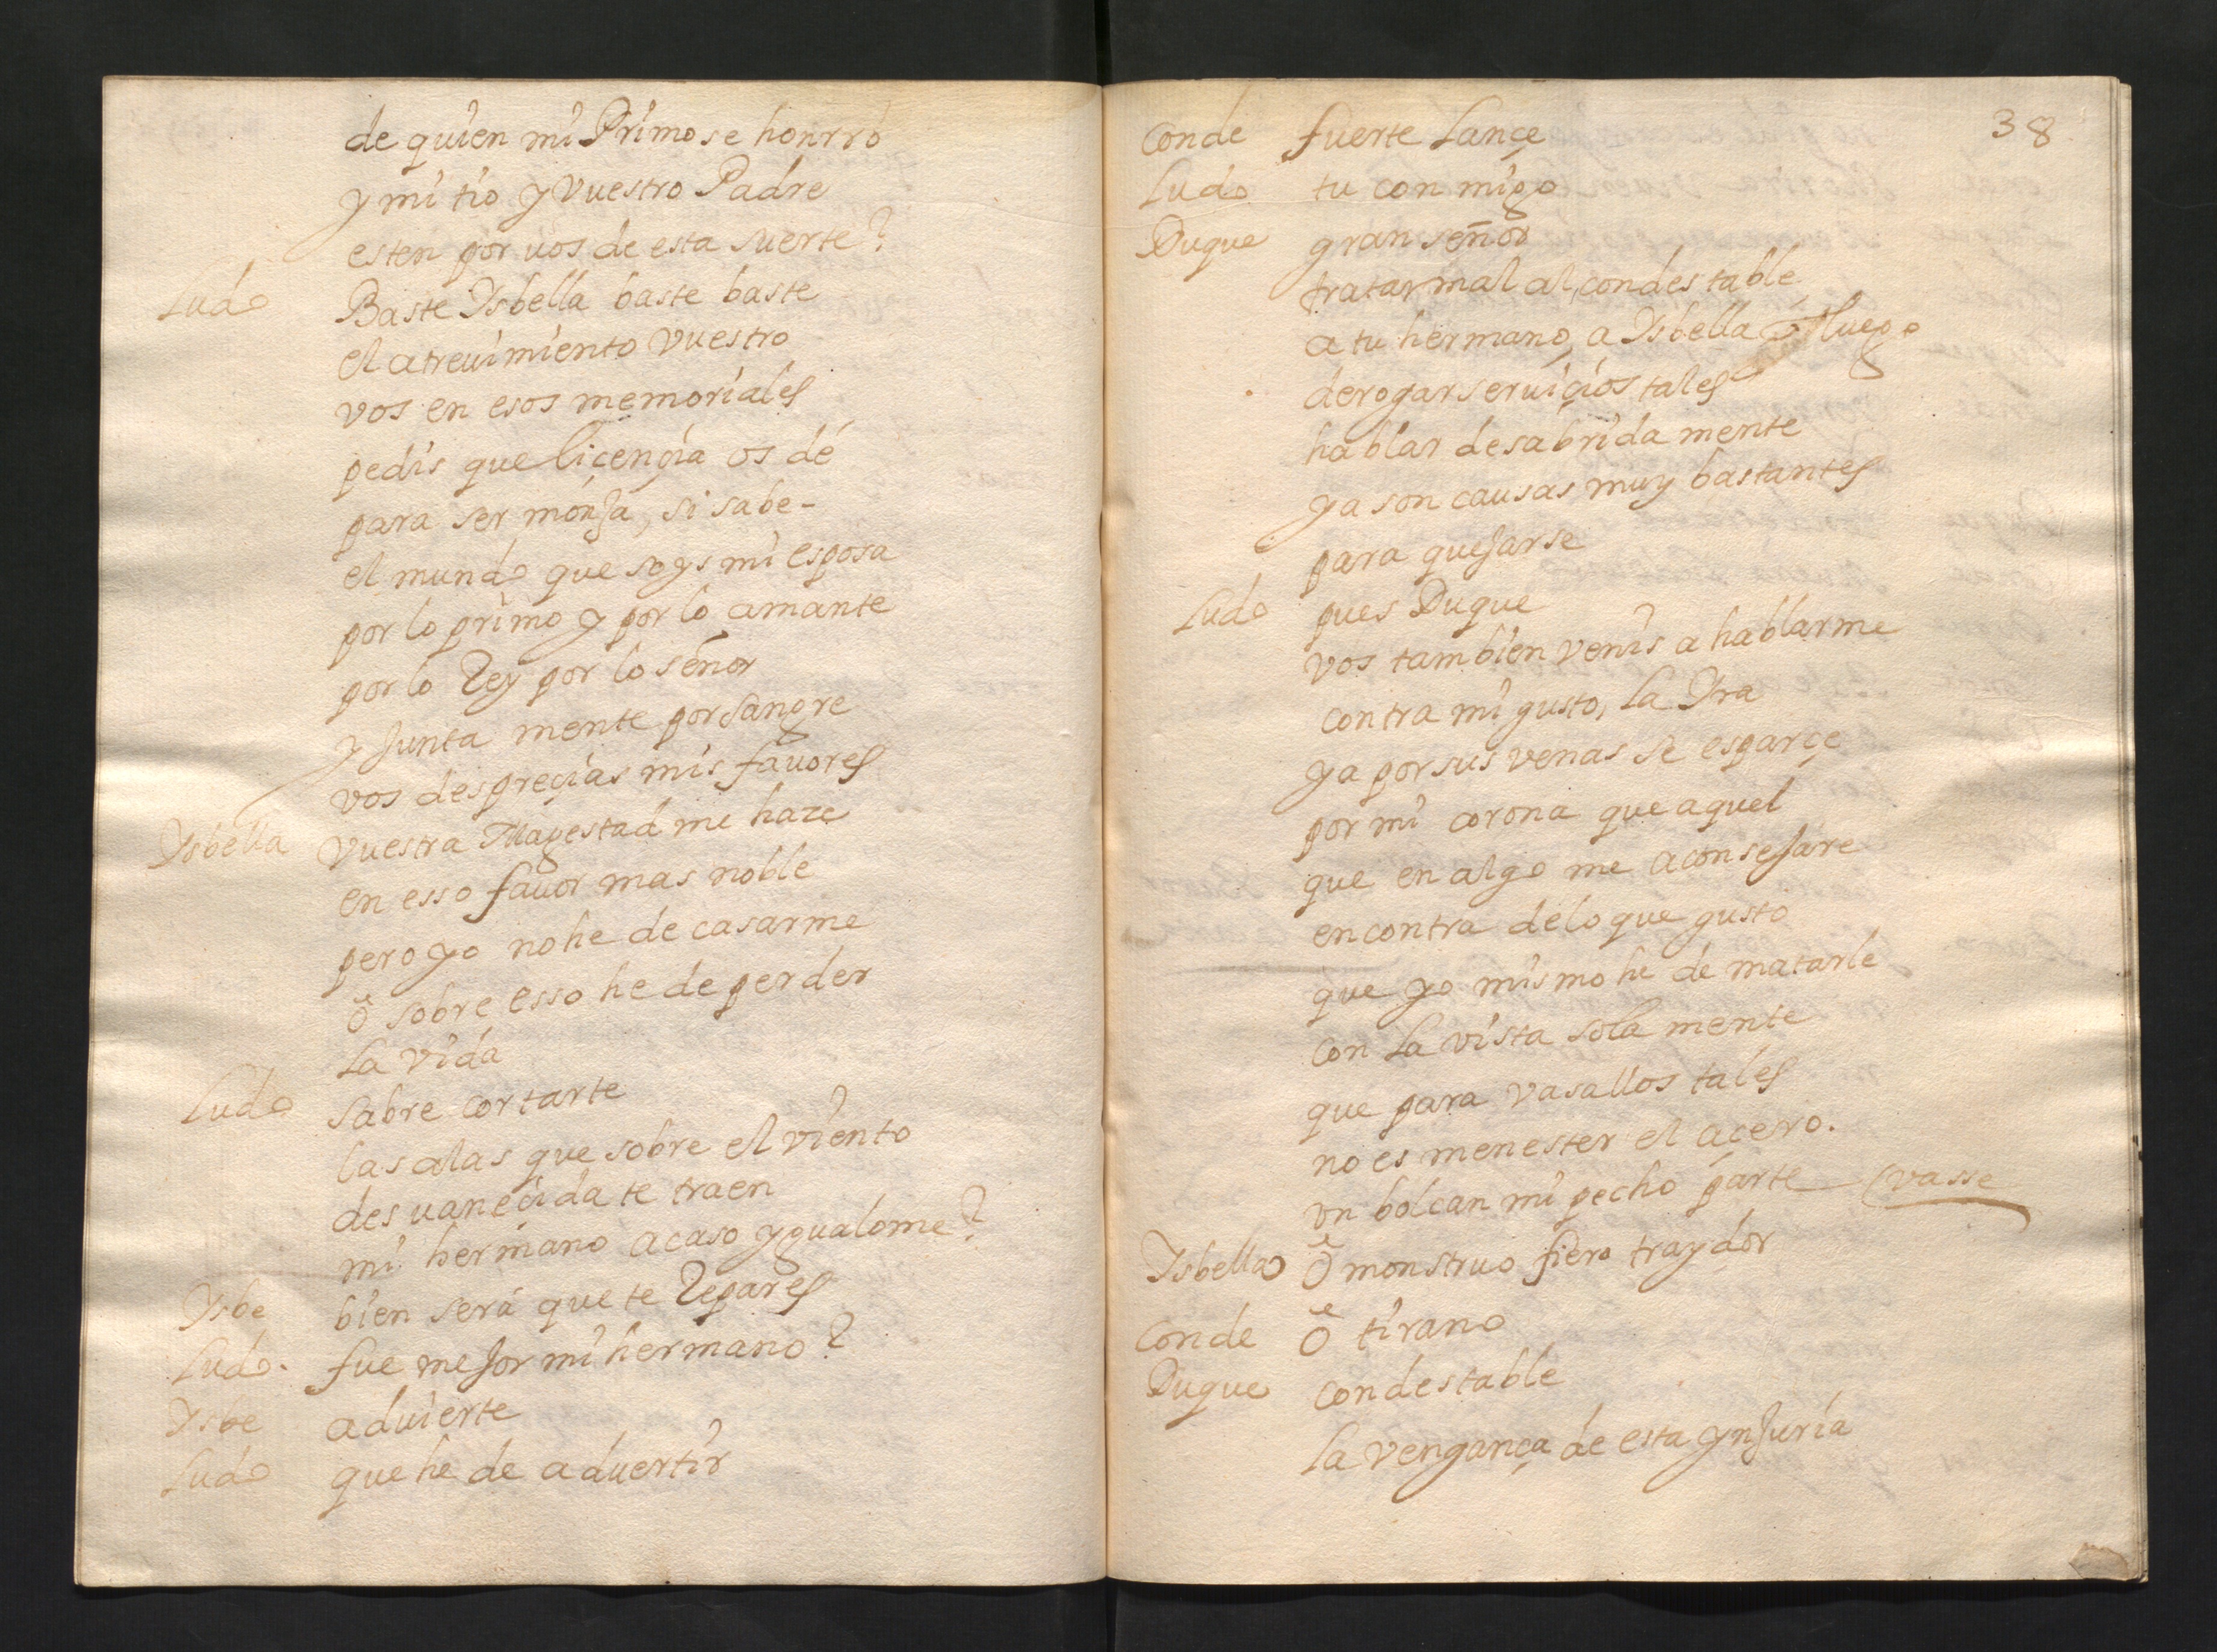 de quien mi Primo se honrró
y mi tio y Vuestro Padre
esten por uos de esta suerte?
Ludo Baste Ysbella baste baste
el atreuimiento Vuestro
vos en esos memoriales
pedis que liçençia os dé
para ser monJa, si sabe-
el mundo que soys mi esposa
por lo primo y por lo amante
por lo Rey por lo señor
y Junta mente por sangre
vos despreçias mis fauores
Ysbella Vuestra Magestad me haze
en esso fauor mas noble
pero yo no he de casarme
ô sobre esso he de perder
la vida
Ludo Sabre cortarte
las alas que sobre el viento
desuaneçida te traen
mi hermano acaso ygualome?
Ysbe bien será que te Repares
Ludo. fue meJor mi hermano?
Ysbe aduierte
Ludo que he de aduertir
38
Conde fuerte Lançe
Ludo tu con migo
Duque gran señor
tratar mal al condestable
a tu hermano, a Ysbella ô luego
derogar seruiçios tales
hablar desabrida mente
ya son causas muy bastantes
para queJarse
Ludo pues Duque
vos tambien venis a hablarme
contra mi gusto, la Yra
ya por sus venas se esparçe
por mi corona que aquel
que en algo me aconseJare
en contra de lo que gusto
que yo mismo he de matarle
con la vista sola mente
que para vasallos tales
no es menester el açero.
vn bolcan mi pecho parte (vasse
Ysbella Ô monstruo fiero traydor
Conde Ô tirano
Duque condestable
la vengança de esta ynJuria